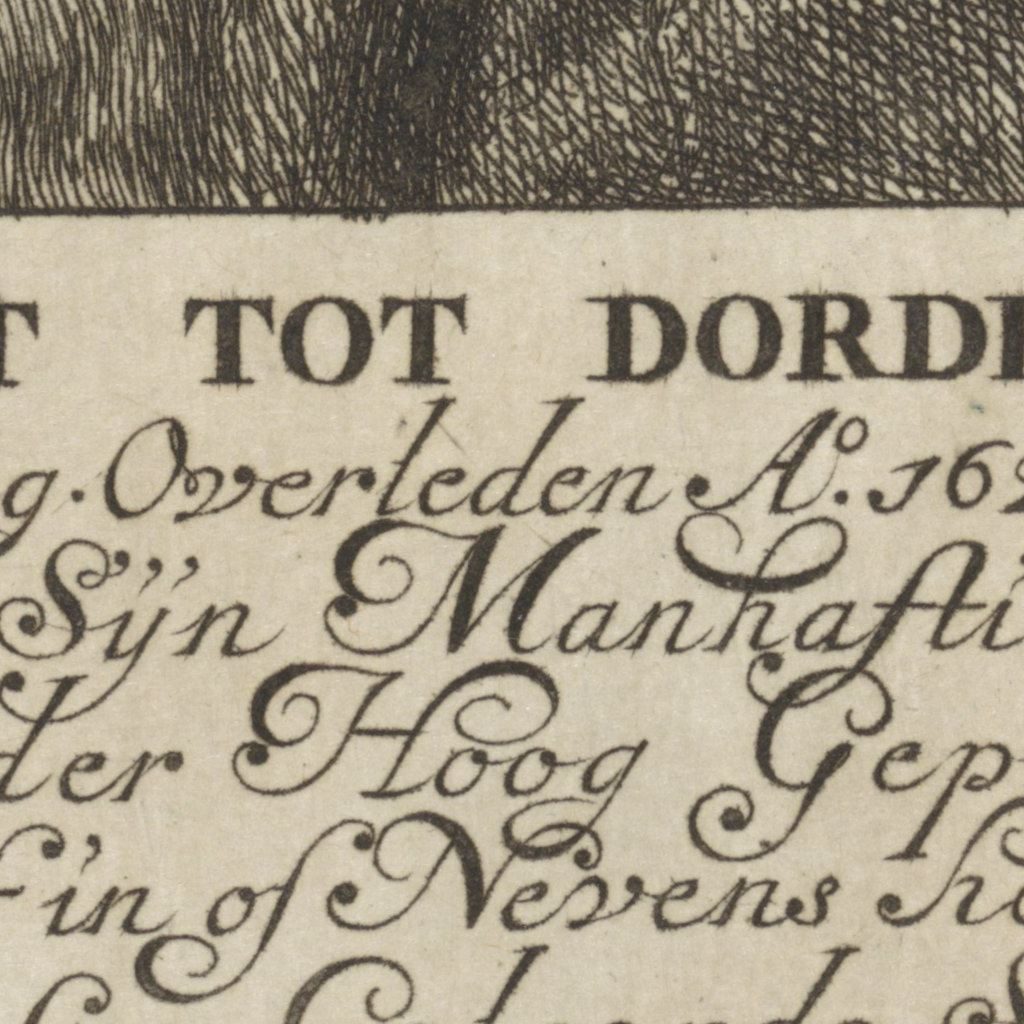 T TOT DORD
g. Overleden Aº. 16
Sÿn Manhafti
der Hoog Gep
in of Nevens